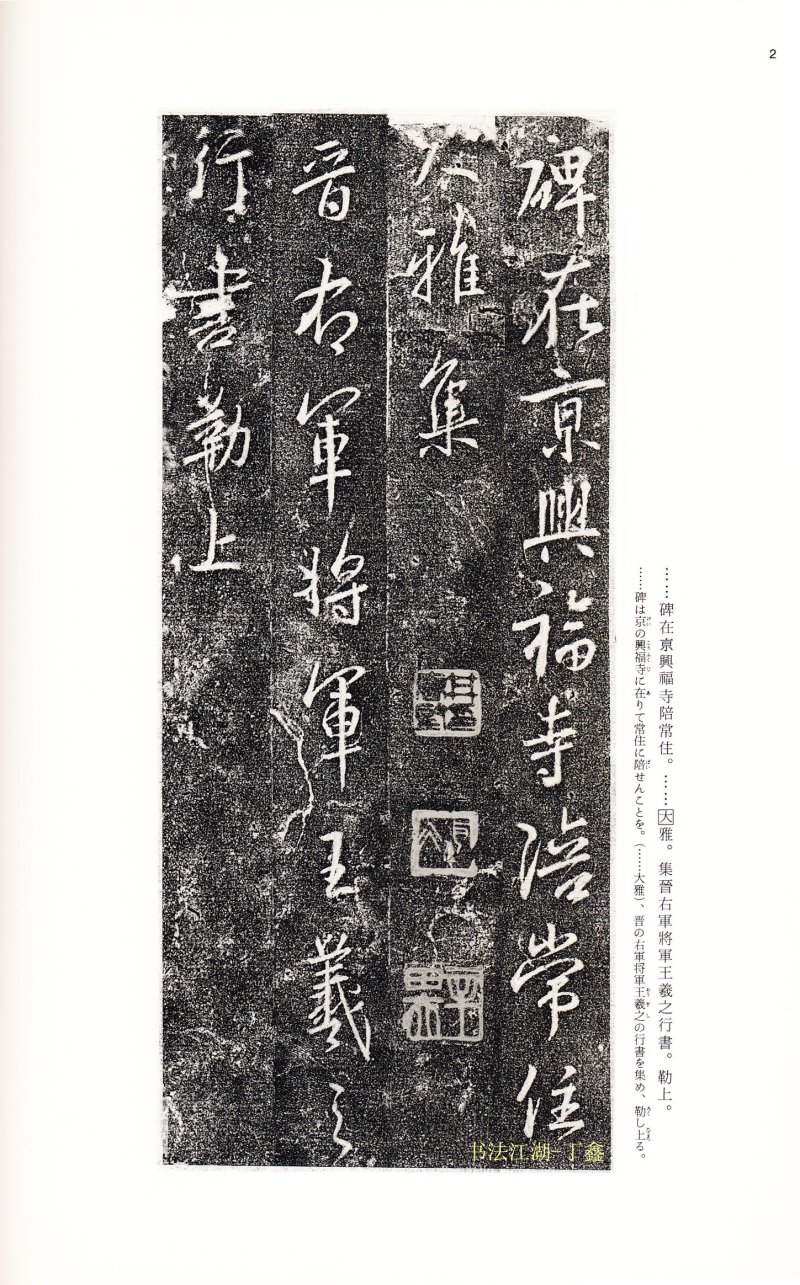 2
碑在京興福寺陪常住
大雅集
晋右軍將軍王羲之
行書勒上
……碑在京興福寺陪常住。……大雅。集晉右軍將軍王羲之行書。勒上。
……碑は京の興福寺に在りて常住に陪せんことを。(……大雅)、晋の右軍将軍王羲之の行書を集め、勒し上る。
书法江湖-丁鑫